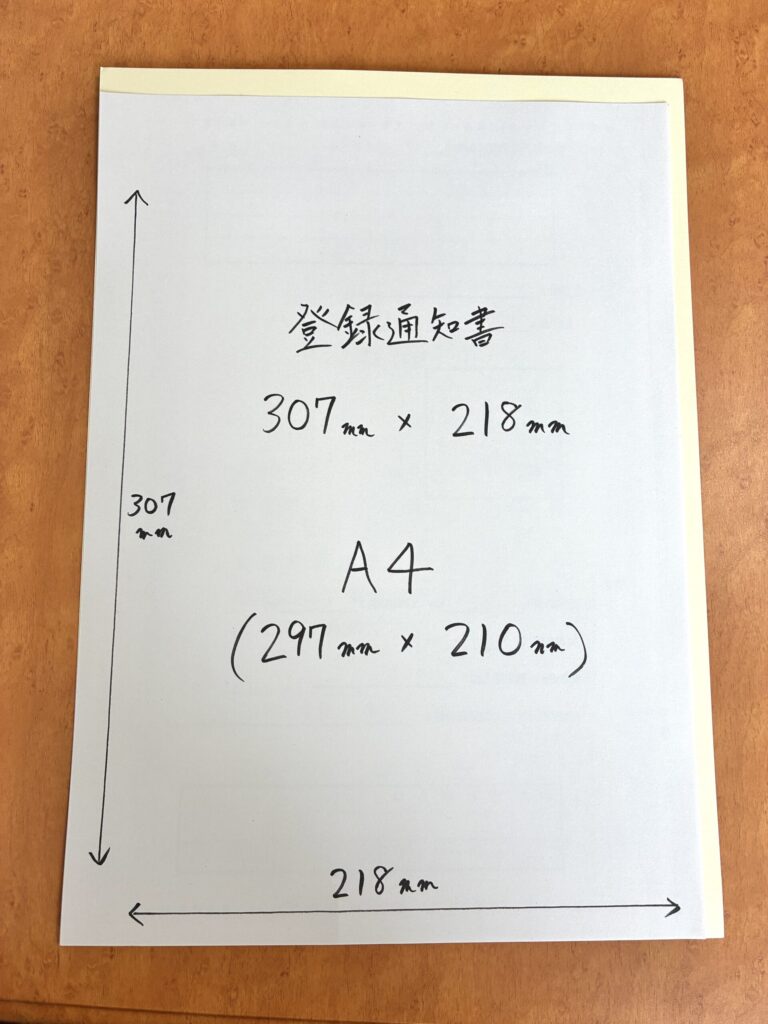 登録通知書
307mm × 218mm
307
mm
A4
(297mm × 210mm)
218mm